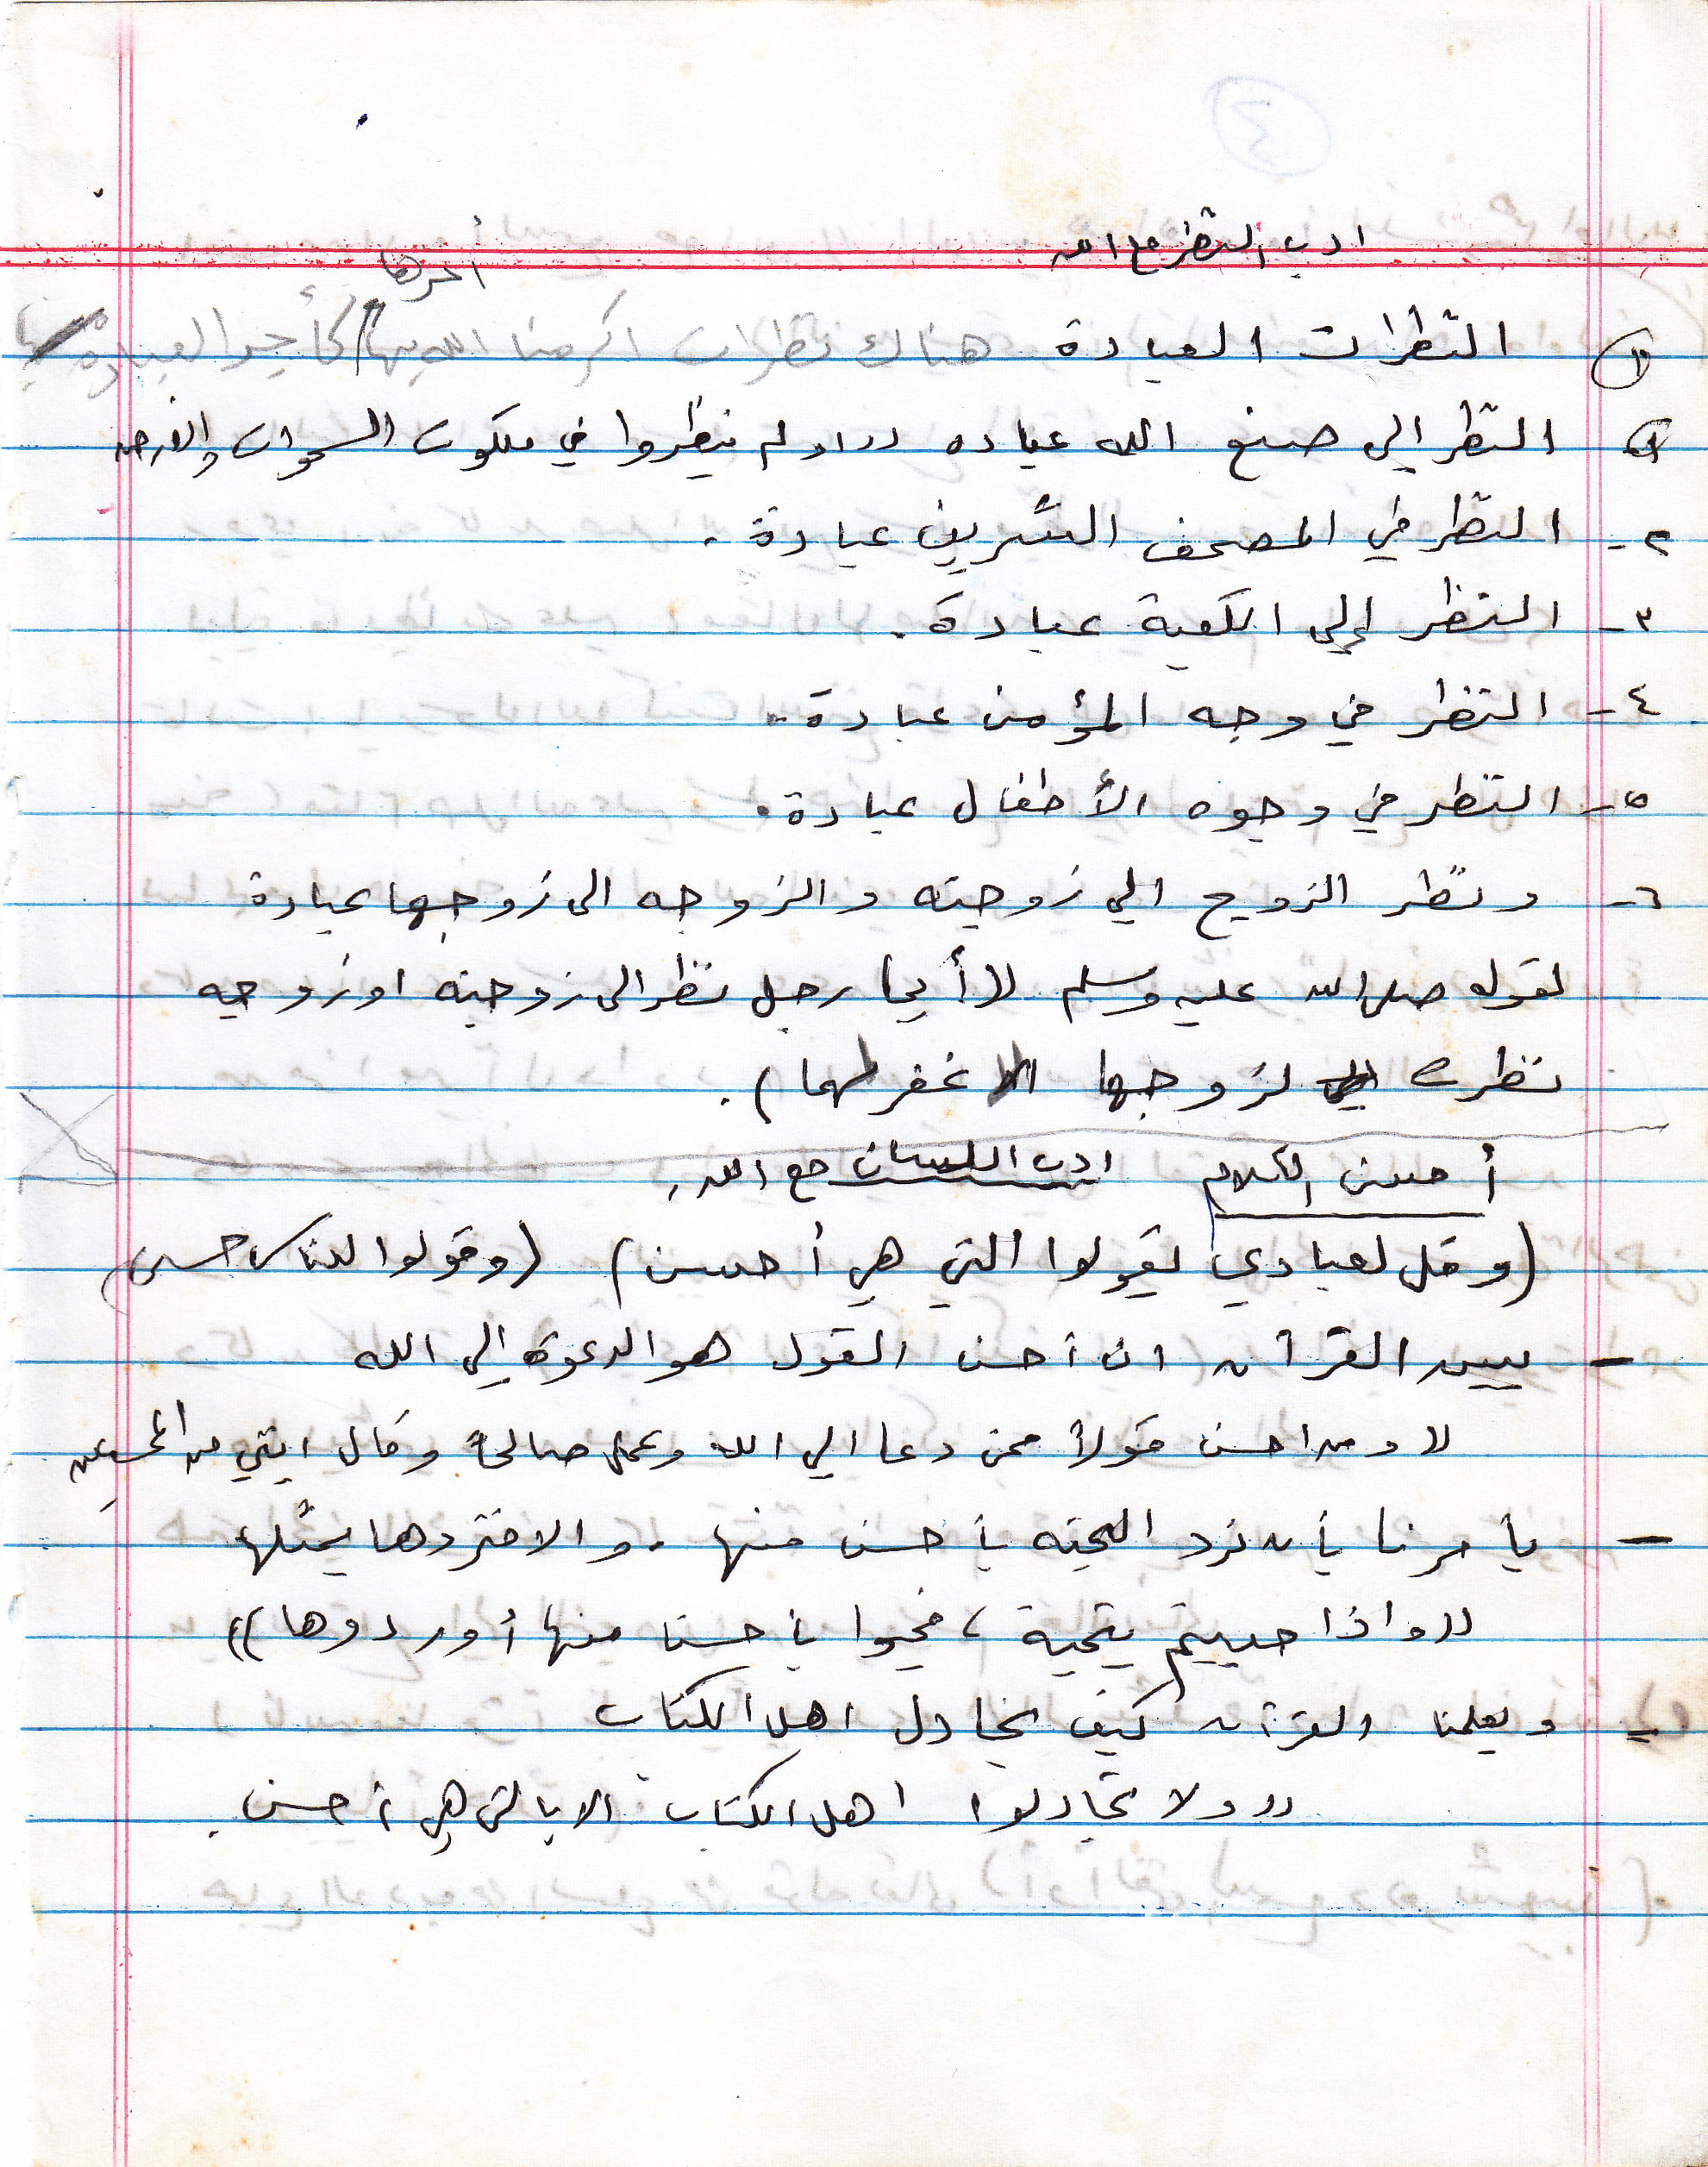 ادب النظر مع الله
أجرها
النظرات العبادة هناك نظرات اكرمنا الله بها كأجر العبادة
١ النظر الى صنع الله عباده ((اولم ينظروا في ملكوت السموات والارض
٢- النظر في المصحف الشريف عبادة.
٣- النظر إلى الكعبة عبادة.
٤- النظر في وجه المؤمن عبادة..
٥- النظر في وجوه الأطفال عبادة.
٦- ونظر الزوج الي زوجته والزوجه الى زوجها عبادة
لقوله صلى الله عليه وسلم ((أيما رجل نظر الى زوجته او زوجه
نظرت لزوجها الا غفر لهما).
أحسن الكلام ادب اللسان مع الله
(وقل لعبادي يقولوا التي هي أحسن) (وقولوا للناس حسنى)
- يبين القرآن ان أحسن القول هو الدعوة إلى الله
((ومن احسن قولاً ممن دعا الي الله وعمل صالحاً وقال انني من المسلمين
- يأمرنا بأن نرد التحيه بأحسن منها. والا فنردها بمثلها
((واذا حييتم بتحية، فحيوا بأحسن منها أو ردوها))
- ويعلمنا القرآن كيف نجادل اهل الكتاب
((ولا تجادلوا اهل الكتاب الا بالتي هي أحسن.